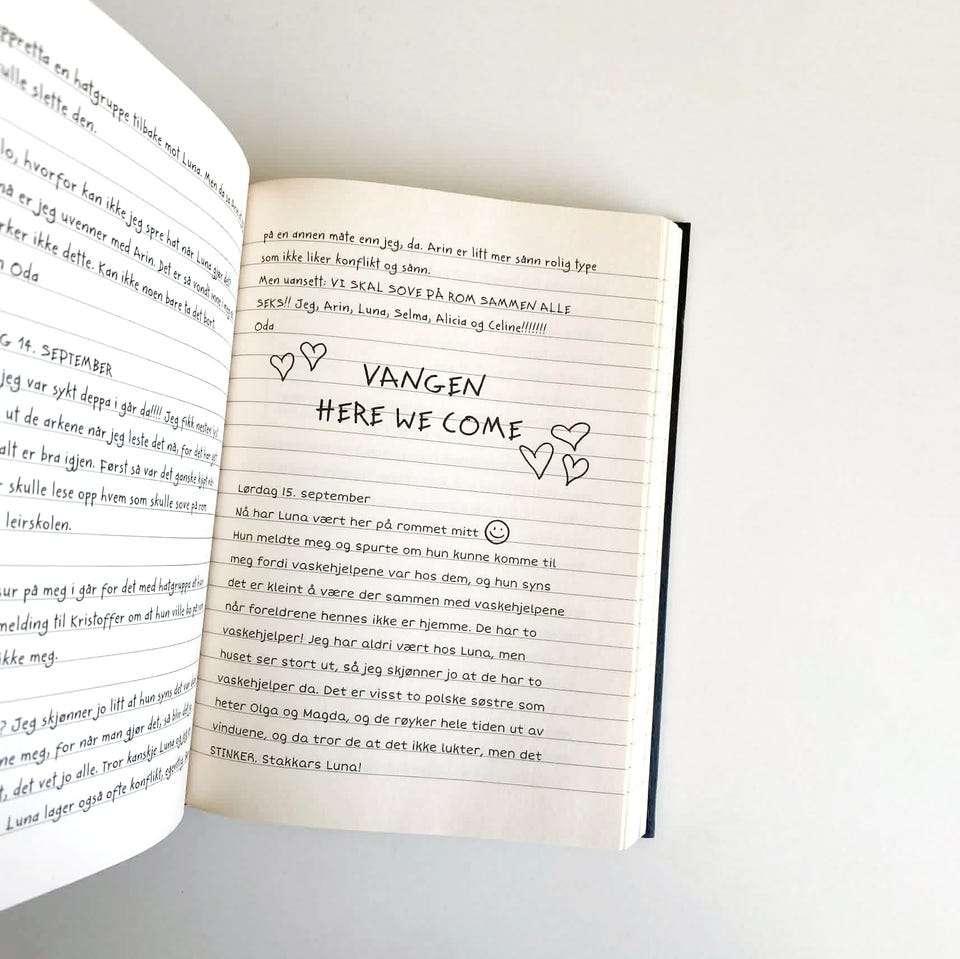 en hatgruppe tilbake mot Luna. Men da sa
slette den.
hvorfor kan ikke jeg spre hat når Luna gjør det?
er jeg uvenner med Arin. Det er så vondt inne i meg
ikke dette. Kan ikke noen bare ta det bort.
Oda
14. SEPTEMBER
jeg var sykt deppa i går da!!!! Jeg fikk nesten
ut de arkene når jeg leste det nå, for det
alt er bra igjen. Først så var det ganske kjipt
skulle lese opp hvem som skulle sove på rom
leirskolen.
på meg i går for det med hatgruppa
melding til Kristoffer om at hun ville bo på rom
ikke meg.
? Jeg skjønner jo litt at hun syns det var
meg, for når man gjør det, så blir det
det vet jo alle. Tror kanskje Luna
Luna lager også ofte konflikt, egentlig
på en annen måte enn jeg, da. Arin er litt mer sånn rolig type
som ikke liker konflikt og sånn.
Men uansett: VI SKAL SOVE PÅ ROM SAMMEN ALLE
SEKS!! Jeg, Arin, Luna, Selma, Alicia og Celine!!!!!!!
Oda
VANGEN
HERE WE COME
Lørdag 15. september
Nå har Luna vært her på rommet mitt
Hun meldte meg og spurte om hun kunne komme til
meg fordi vaskehjelpene var hos dem, og hun syns
det er kleint å være der sammen med vaskehjelpene
når foreldrene hennes ikke er hjemme. De har to
vaskehjelper! Jeg har aldri vært hos Luna, men
huset ser stort ut, så jeg skjønner jo at de har to
vaskehjelper da. Det er visst to polske søstre som
heter Olga og Magda, og de røyker hele tiden ut av
vinduene, og da tror de at det ikke lukter, men det
STINKER. Stakkars Luna!